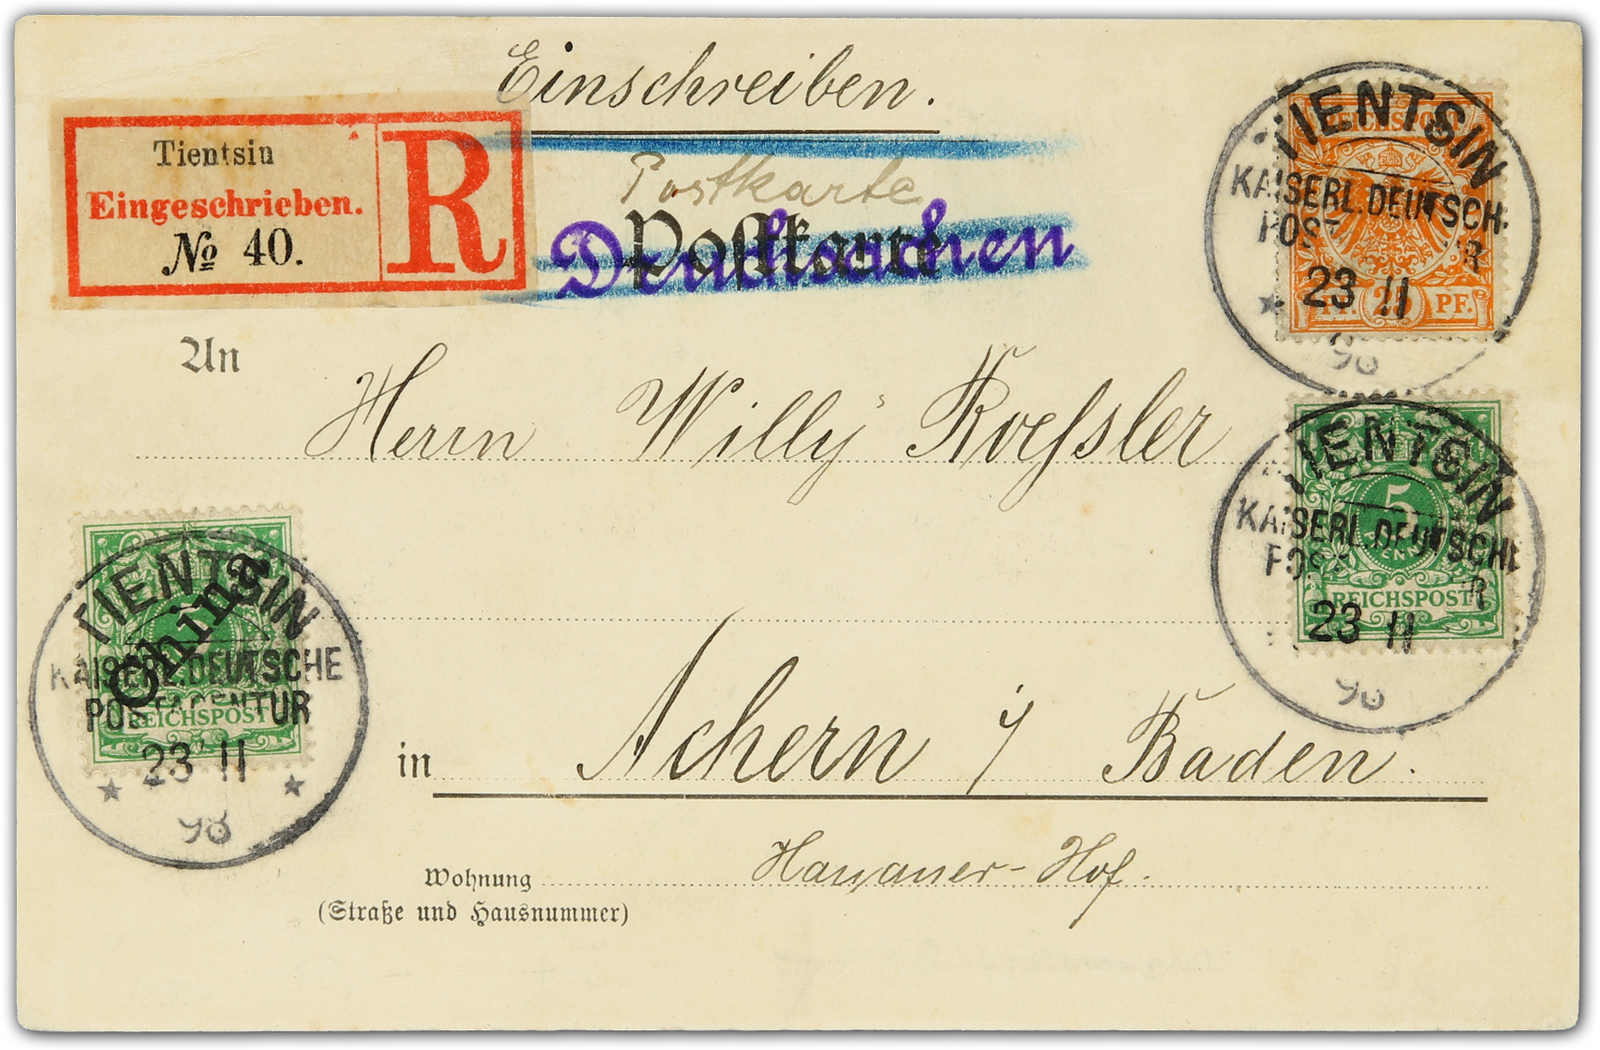 Einschreiben.
Tientsin
Eingeschrieben.
№ 40.
R
Postkarte
Postkarte
Drucksachen
TIENTSIN
KAISERL. DEUTSCHE
23 11
98
PF.
An
Herrn Willy Roeſsler
TIENTSIN
KAISERL. DEUTSCHE
23 11
98
5
REICHSPOST
TIENTSIN
China
KAISERL. DEUTSCHE
POSTAGENTUR
REICHSPOST
23 11
98
in Achern i/ Baden.
Wohnung Hanauer-Hof.
(Straße und Hausnummer)